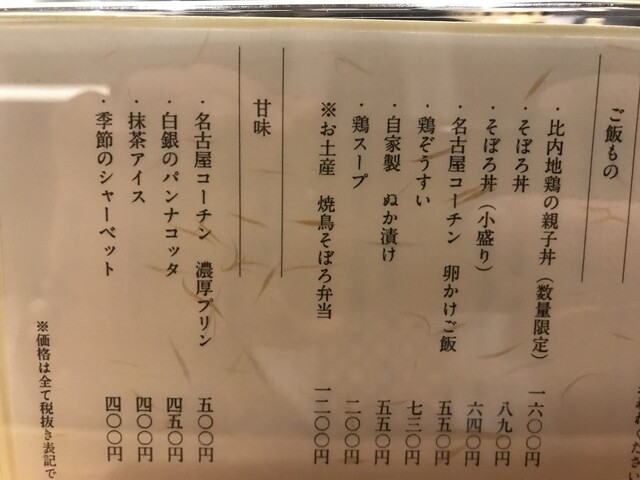 ご飯もの
・比内地鶏の親子丼(数量限定) 一六〇〇円
・そぼろ丼 八九〇円
・そぼろ丼(小盛り) 六四〇円
・名古屋コーチン 卵かけご飯 五五〇円
・鶏ぞうすい 七三〇円
・自家製 ぬか漬け 五五〇円
・鶏スープ 二〇〇円
※お土産 焼鳥そぼろ弁当 一二〇〇円
甘味
・名古屋コーチン 濃厚プリン 五〇〇円
・白銀のパンナコッタ 四五〇円
・抹茶アイス 四〇〇円
・季節のシャーベット 四〇〇円
※価格は全て税抜き表記で